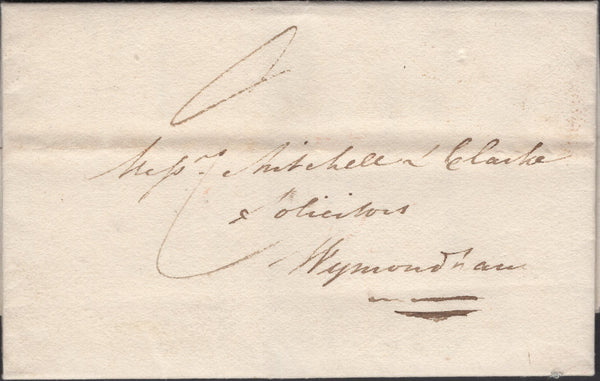 Messrs Mitchell & Clarke
Solicitors
Wymondham